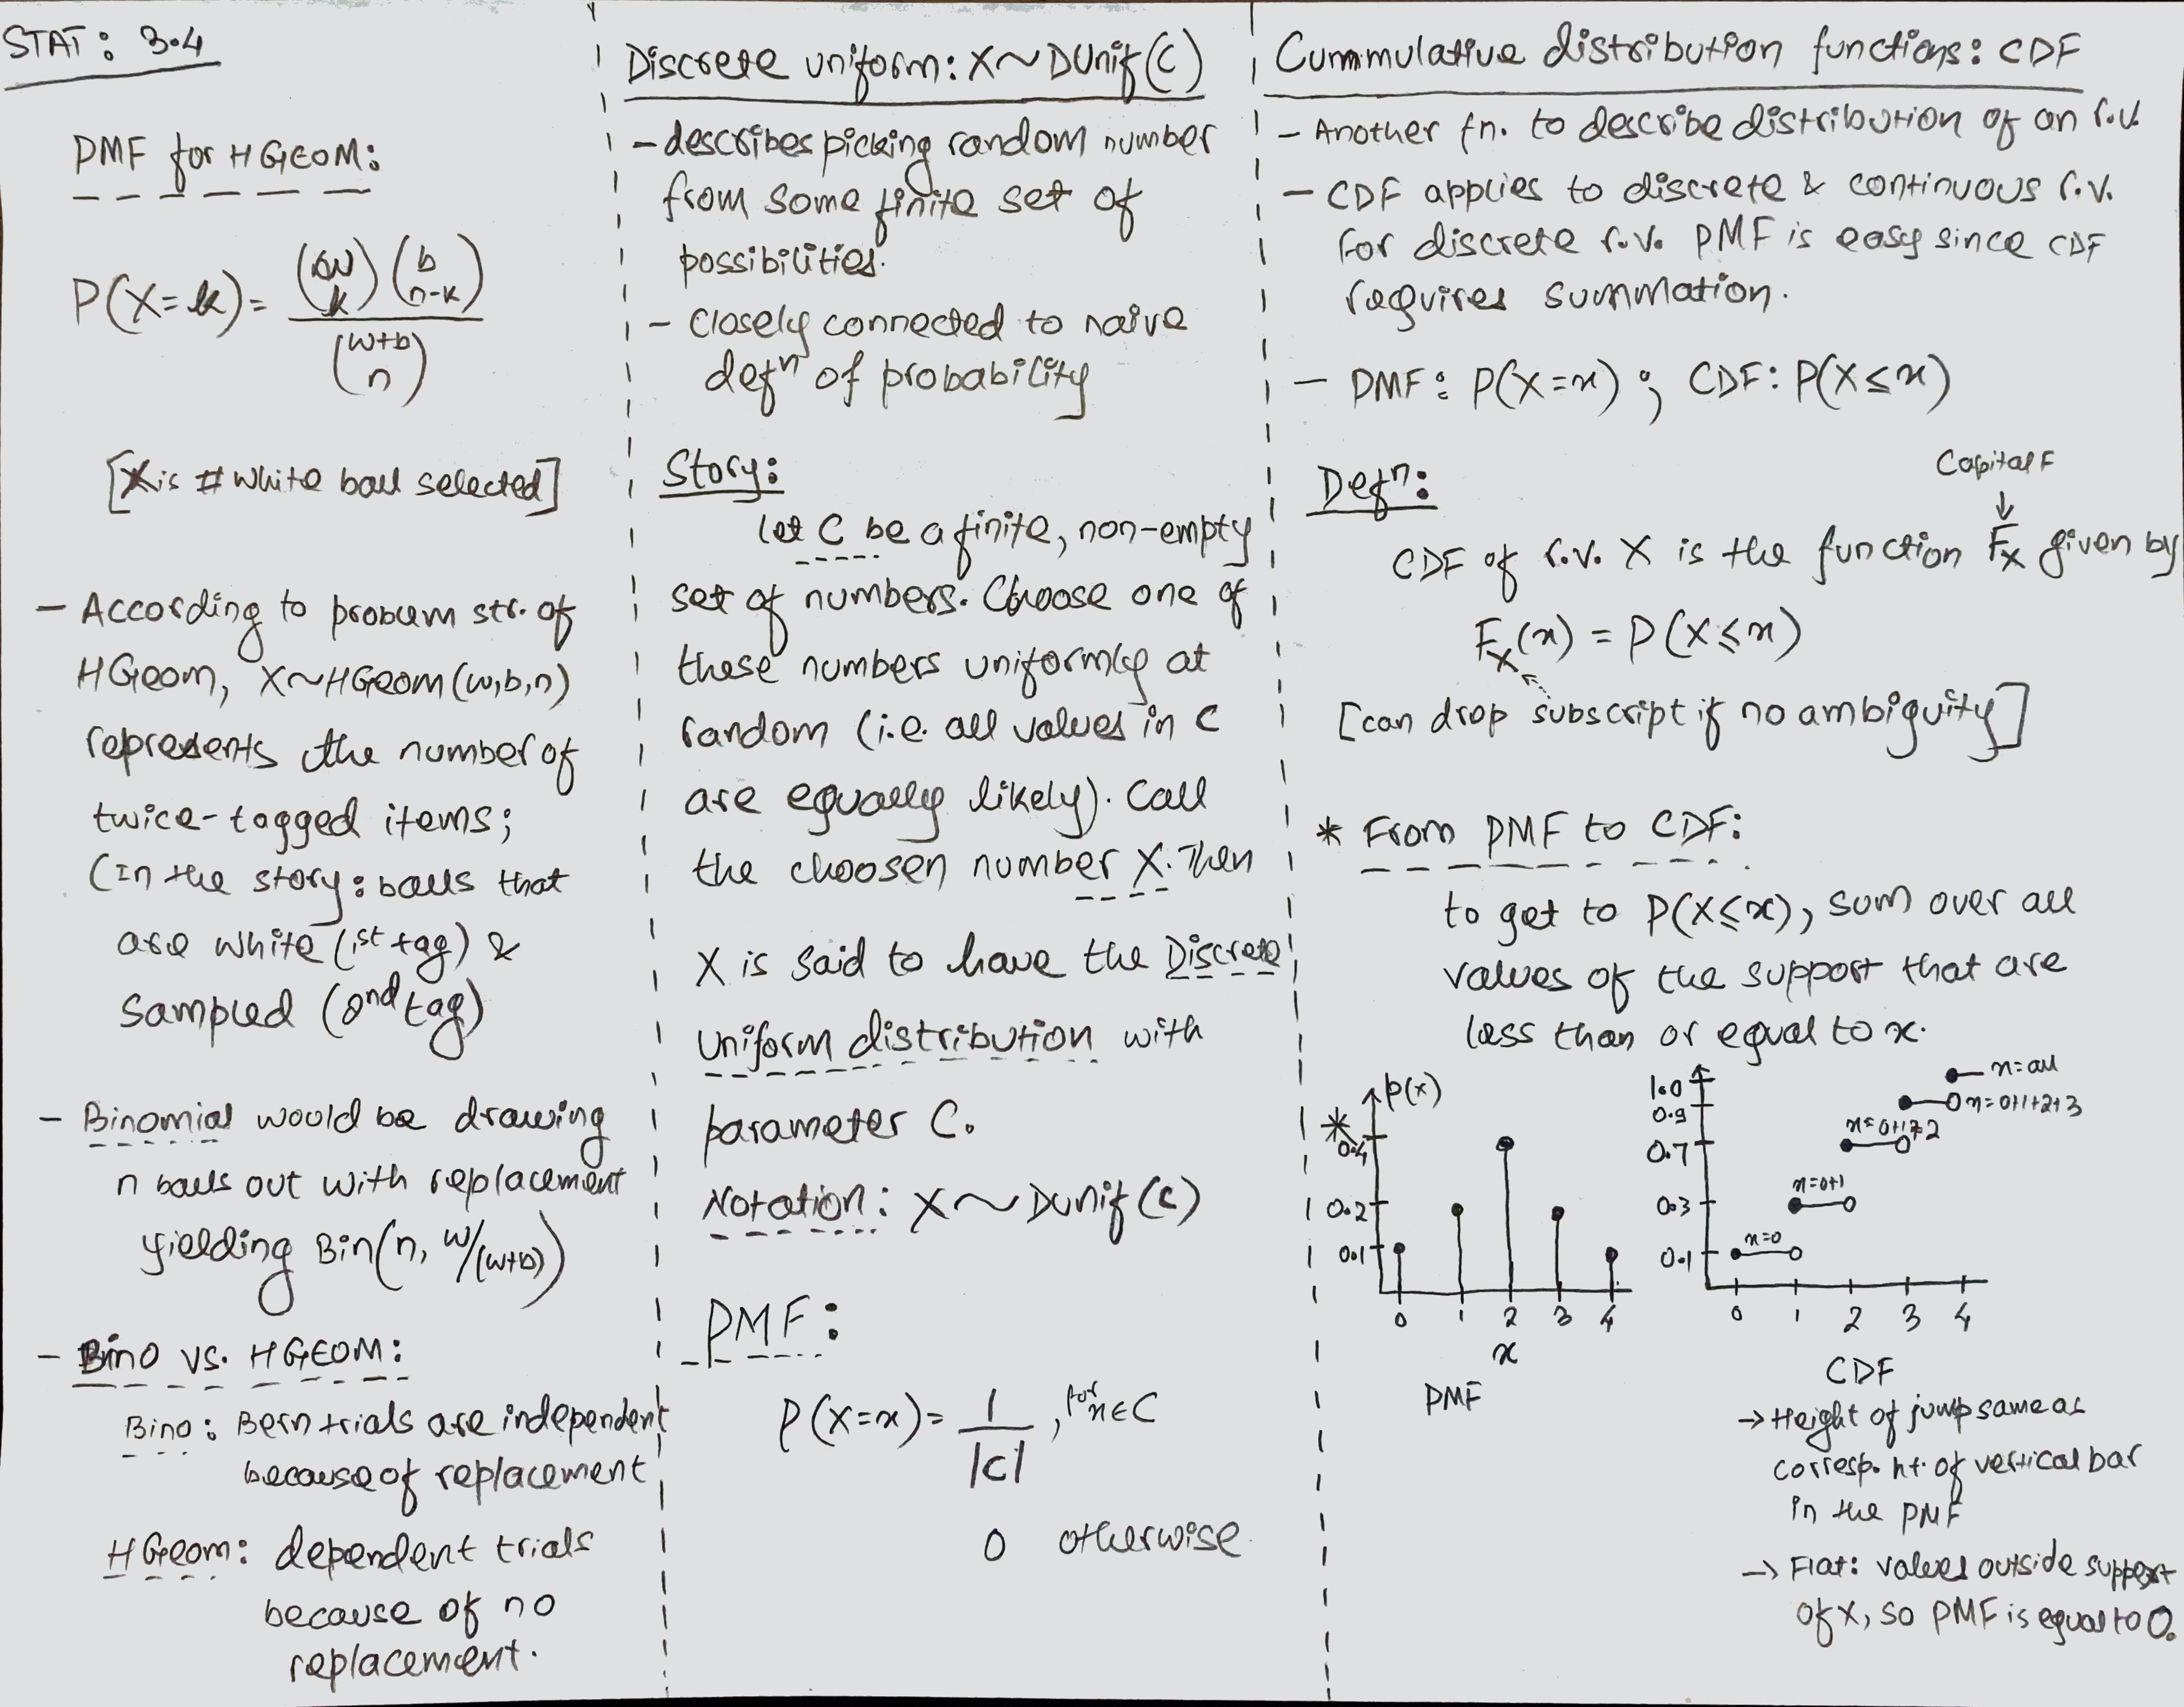 STAT: 3.4
PMF for HGEOM:
P(X=k) = (w k)(b n-k) / (w+b n)
[X is # white ball selected]
- According to problem str. of
HGeom, X~HGeom(w,b,n)
represents the number of
twice-tagged items;
(In the story: balls that
are white (1st tag) &
sampled (2nd tag)
- Binomial would be drawing
n balls out with replacement
yielding Bin(n, w/(w+b))
- Bino vs. HGEOM:
Bino: Bern trials are independent
because of replacement
HGeom: dependent trials
because of no
replacement.
Discrete uniform: X~DUnif(C)
- describes picking random number
from some finite set of
possibilities.
- Closely connected to naive
defⁿ of probability
Story:
let C be a finite, non-empty
set of numbers. Choose one of
these numbers uniformly at
random (i.e. all values in C
are equally likely). Call
the choosen number X. Then
X is said to have the Discrete
Uniform distribution with
parameter C.
Notation: X~DUnif(C)
PMF:
P(X=x) = 1/|C| , for x∈C
0 otherwise
Cummulative distribution functions: CDF
- Another fn. to describe distribution of an r.v.
- CDF applies to discrete & continuous r.v.
For discrete r.v. PMF is easy since CDF
requires summation.
- PMF: P(X=x) ; CDF: P(X≤x)
Capital F
↓
Defⁿ:
CDF of r.v. X is the function F_X given by
F_X(x) = P(X≤x)
[can drop subscript if no ambiguity]
* From PMF to CDF:
to get to P(X≤x), sum over all
values of the support that are
less than or equal to x.
*
p(x)
0.4
0.2
0.1
0 1 2 3 4
x
PMF
1.0
0.9
0.7
0.3
0.1
x=all
x=0+1+2+3
x=0+1+2
x=0+1
x=0
0 1 2 3 4
CDF
→ Height of jump same as
corresp. ht. of vertical bar
in the PMF
→ Flat: values outside support
of X, so PMF is equal to 0.